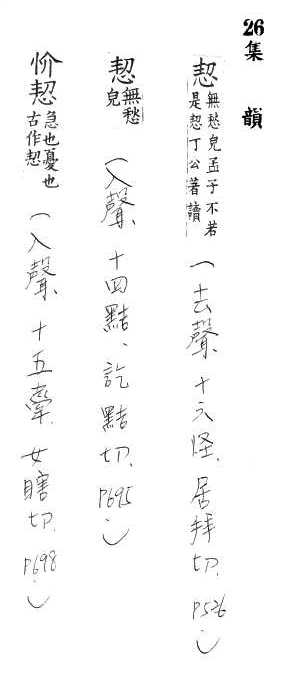 26 集韻
恝 無愁皃孟子不若是恝丁公著讀 （去聲、十六怪、居拜切、P526。）
恝 無愁皃 （入聲、十四黠、訖黠切、P695。）
忦恝 急也憂也古作恝 （入聲、十五舝、女瞎切、P698。）